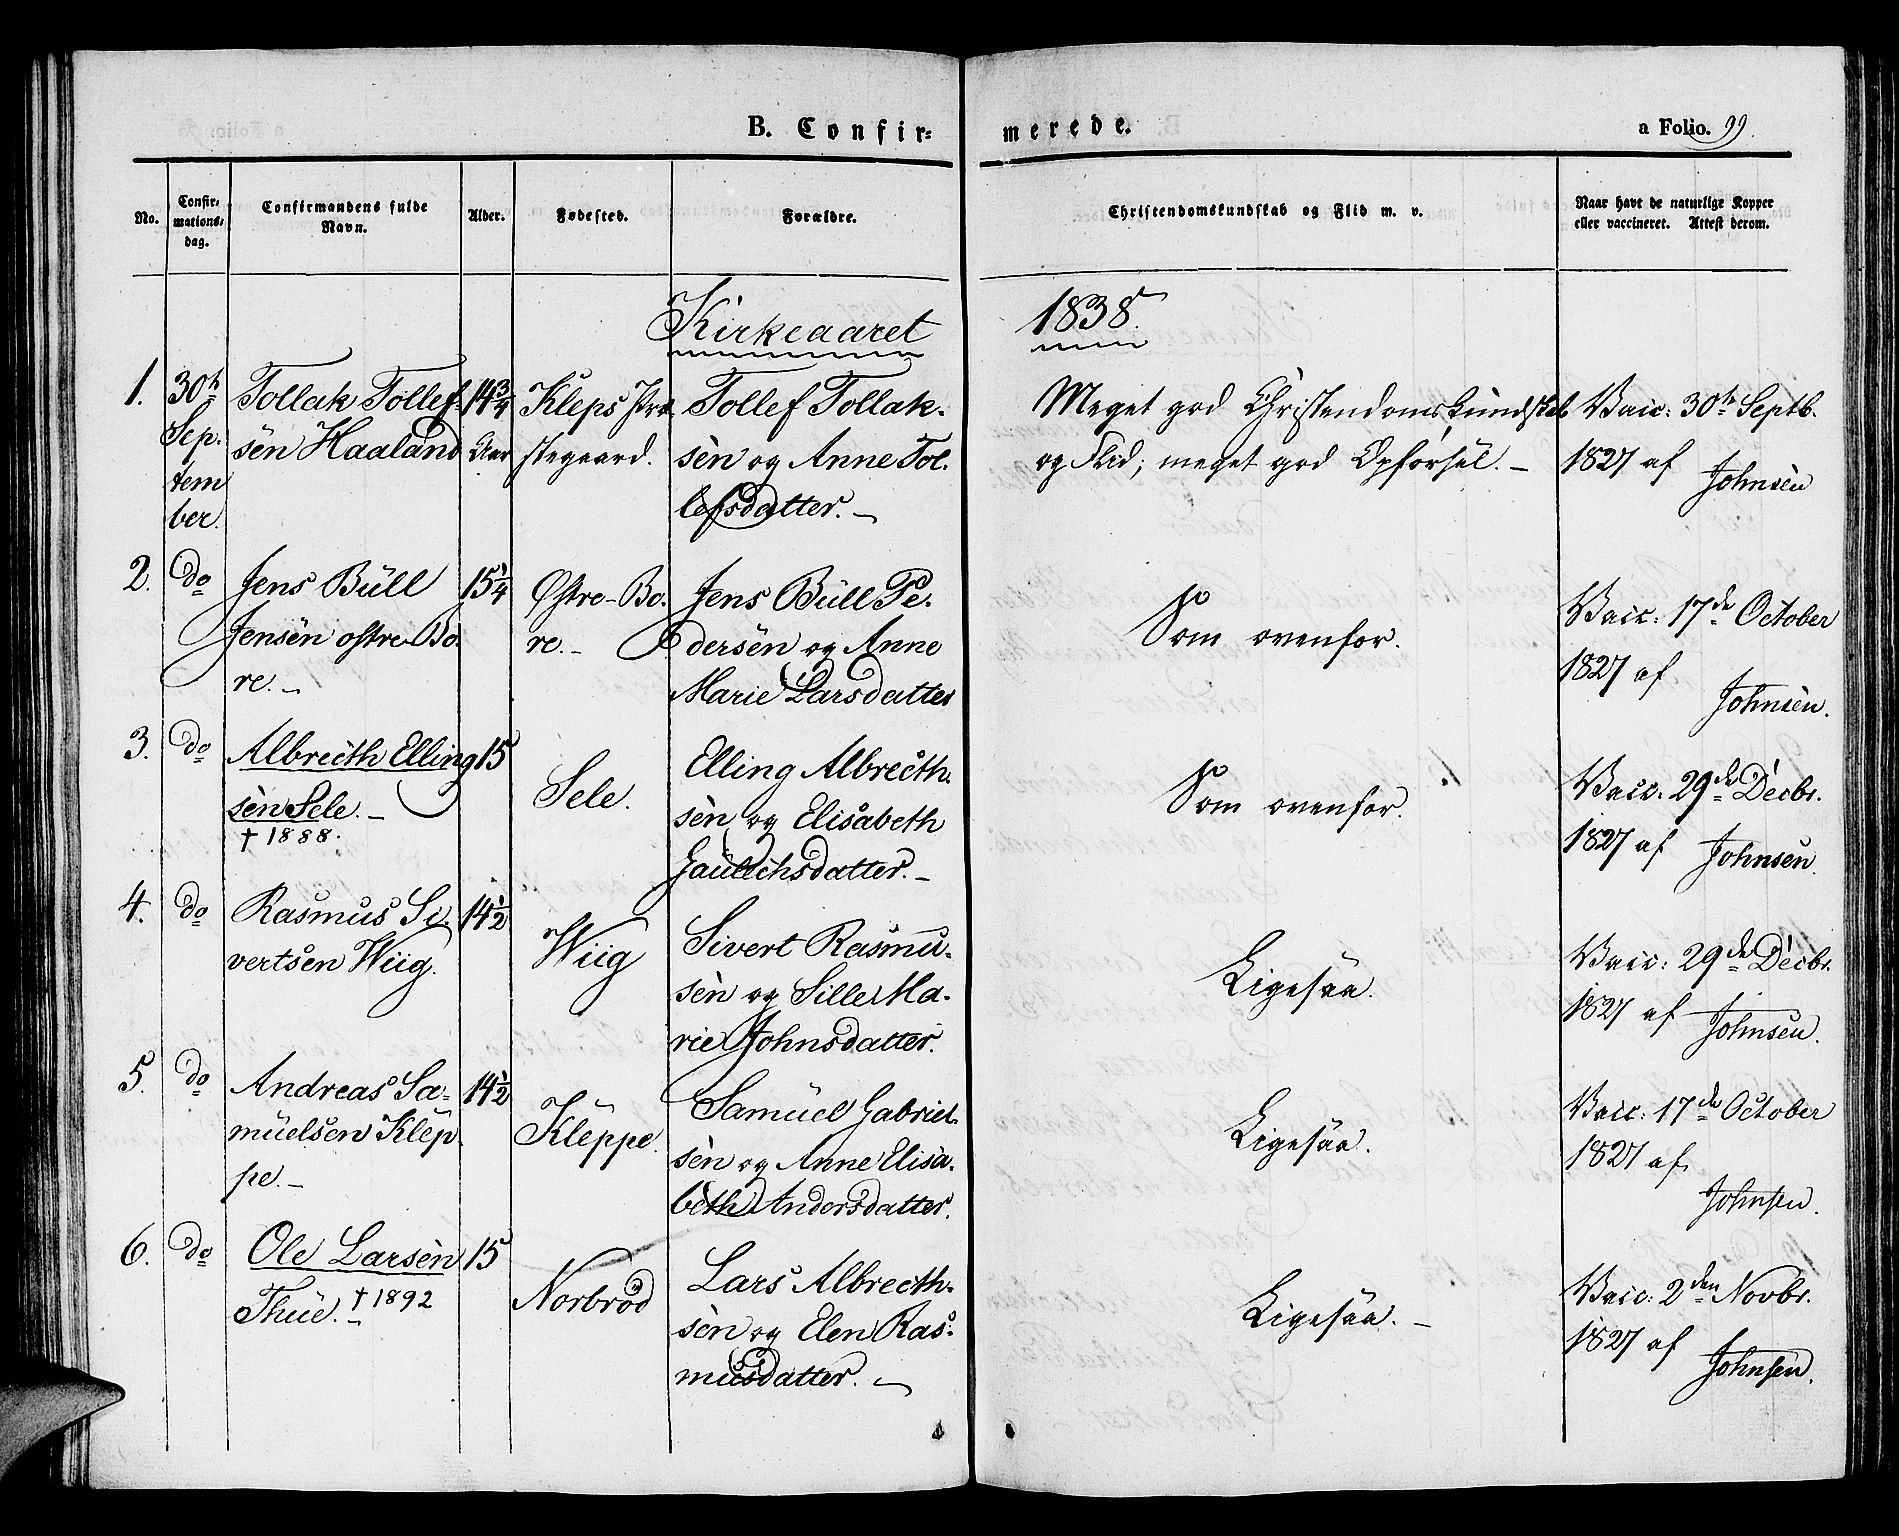 B. Confir=
merede.
a Folio. 99.
No.
Confir=
mations=
dag.
Confirmandens fulde
Navn.
Alder.
Fødested.
Forældre.
Christendomskundskab og Flid m. v.
Naar havt de naturlige Kopper
eller vaccineret. Attest derom.
Kirkeaaret
1838.
1.
30te
Sep-
tem
ber.
Tollak Tollef-
sen Haaland
14 3/4
Aar
Kleps Præ
stegaard.
Tollef Tollak-
sen og Anne Tol-
lefsdatter. –
Meget god Christendomskundskab
og Flid; meget god Opførsel. –
Vacc: 30te Septb.
1827 af
Johnsen
2.
do
Jens Büll
Jensen østre Bo-
re. –
15 1/4
Østre-Bo-
re. –
Jens Büll Pe-
dersen og Anne
Marie Larsdatter
Som ovenfor.
Vacc: 17de October
1827 af
Johnsen.
3.
do
Albrecth Elling
sen Sele. –
† 1888.
15
Sele.
Elling Albrecth-
sen og Elisabeth
Gaülichsdatter. –
Som ovenfor.
Vacc: 29de Decbr.
1827 af
Johnsen.
4.
do
Rasmus Si-
vertsen Wiig.
14 1/2
Wiig
Sivert Rasmu-
sen og Sille Ma-
rie Johnsdatter.
Ligesaa.
Vacc: 29de Decbr.
1827 af
Johnsen.
5.
do
Andreas Sa-
müelsen Klep
pe. –
14 1/2
Kleppe.
Samüel Gabriel-
sen og Anne Elisa-
beth Andersdatter.
Ligesaa.
Vacc: 17de October
1827 af
Johnsen.
6.
do
Ole Larsen
Thüe. – † 1892
15
Norbrød
Lars Albrecth-
sen og Elen Ras-
musdatter. –
Ligesaa. –
Vacc: 2den Novbr.
1827 af
Johnsen.